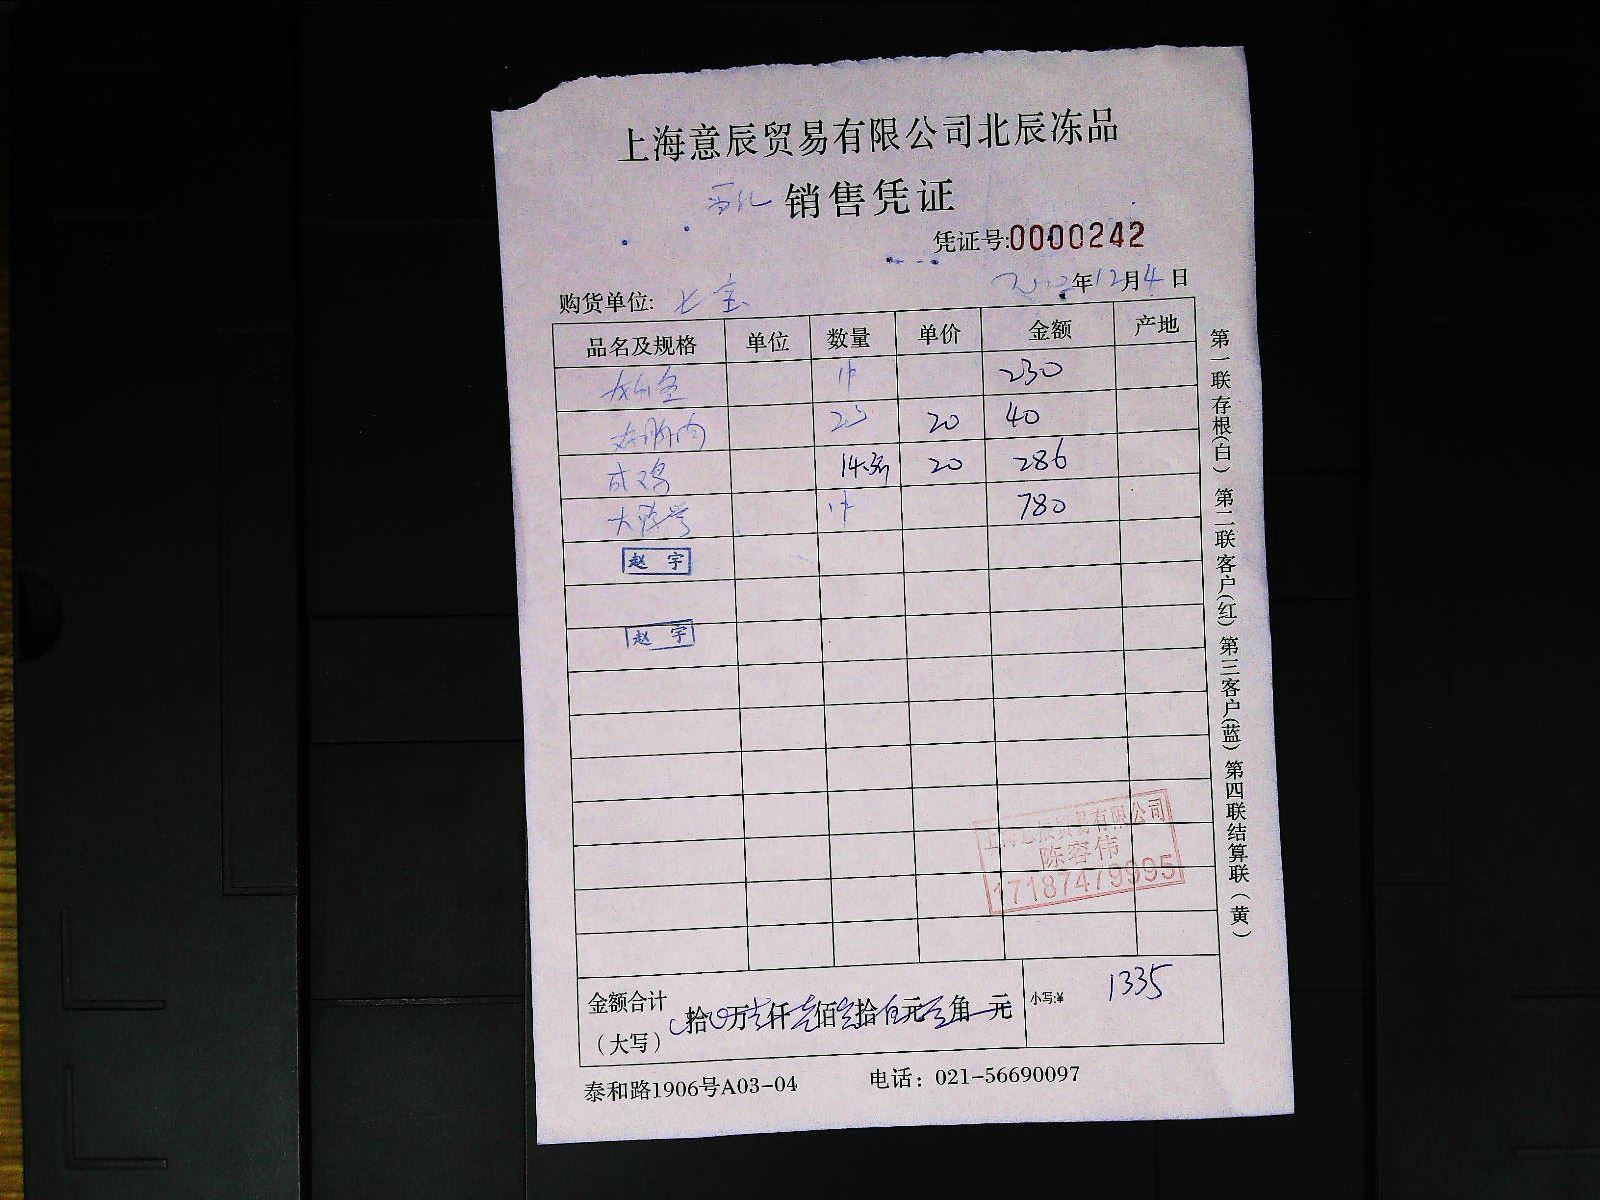 上海意辰贸易有限公司北辰冻品
销售凭证
凭证号:0000242
年12月4日
购货单位: 七宝
品名及规格 单位 数量 单价 金额 产地
1件 230
20 40
成鸡 20 286
大 1件 780
赵 宇
赵 宇
上海意辰贸易有限公司
陈容伟
17187479995
金额合计
(大写)
拾 万 仟 佰 拾 元 角 元
小写:¥ 1335
泰和路1906号A03-04 电话: 021-56690097
第一联存根(白) 第二联客户(红) 第三客户(蓝) 第四联结算联(黄)